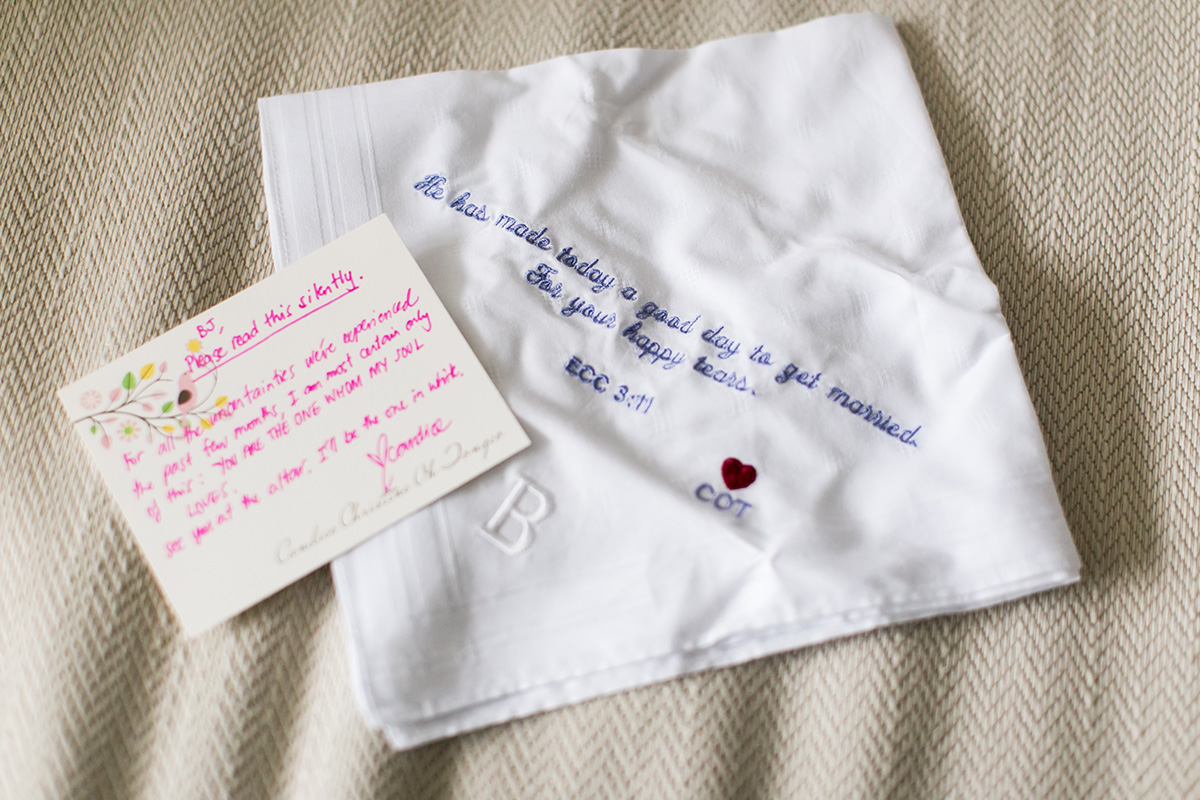 BJ,
Please read this silently.
For all the uncertainties we've experienced
the past few months, I am most certain only
of this: YOU ARE THE ONE WHOM MY SOUL
LOVES.
see you at the altar. I'll be the one in white.
candice
Candice Christine Oh Tongco
He has made today a good day to get married.
For your happy tears.
ECC 3:11
COT
B